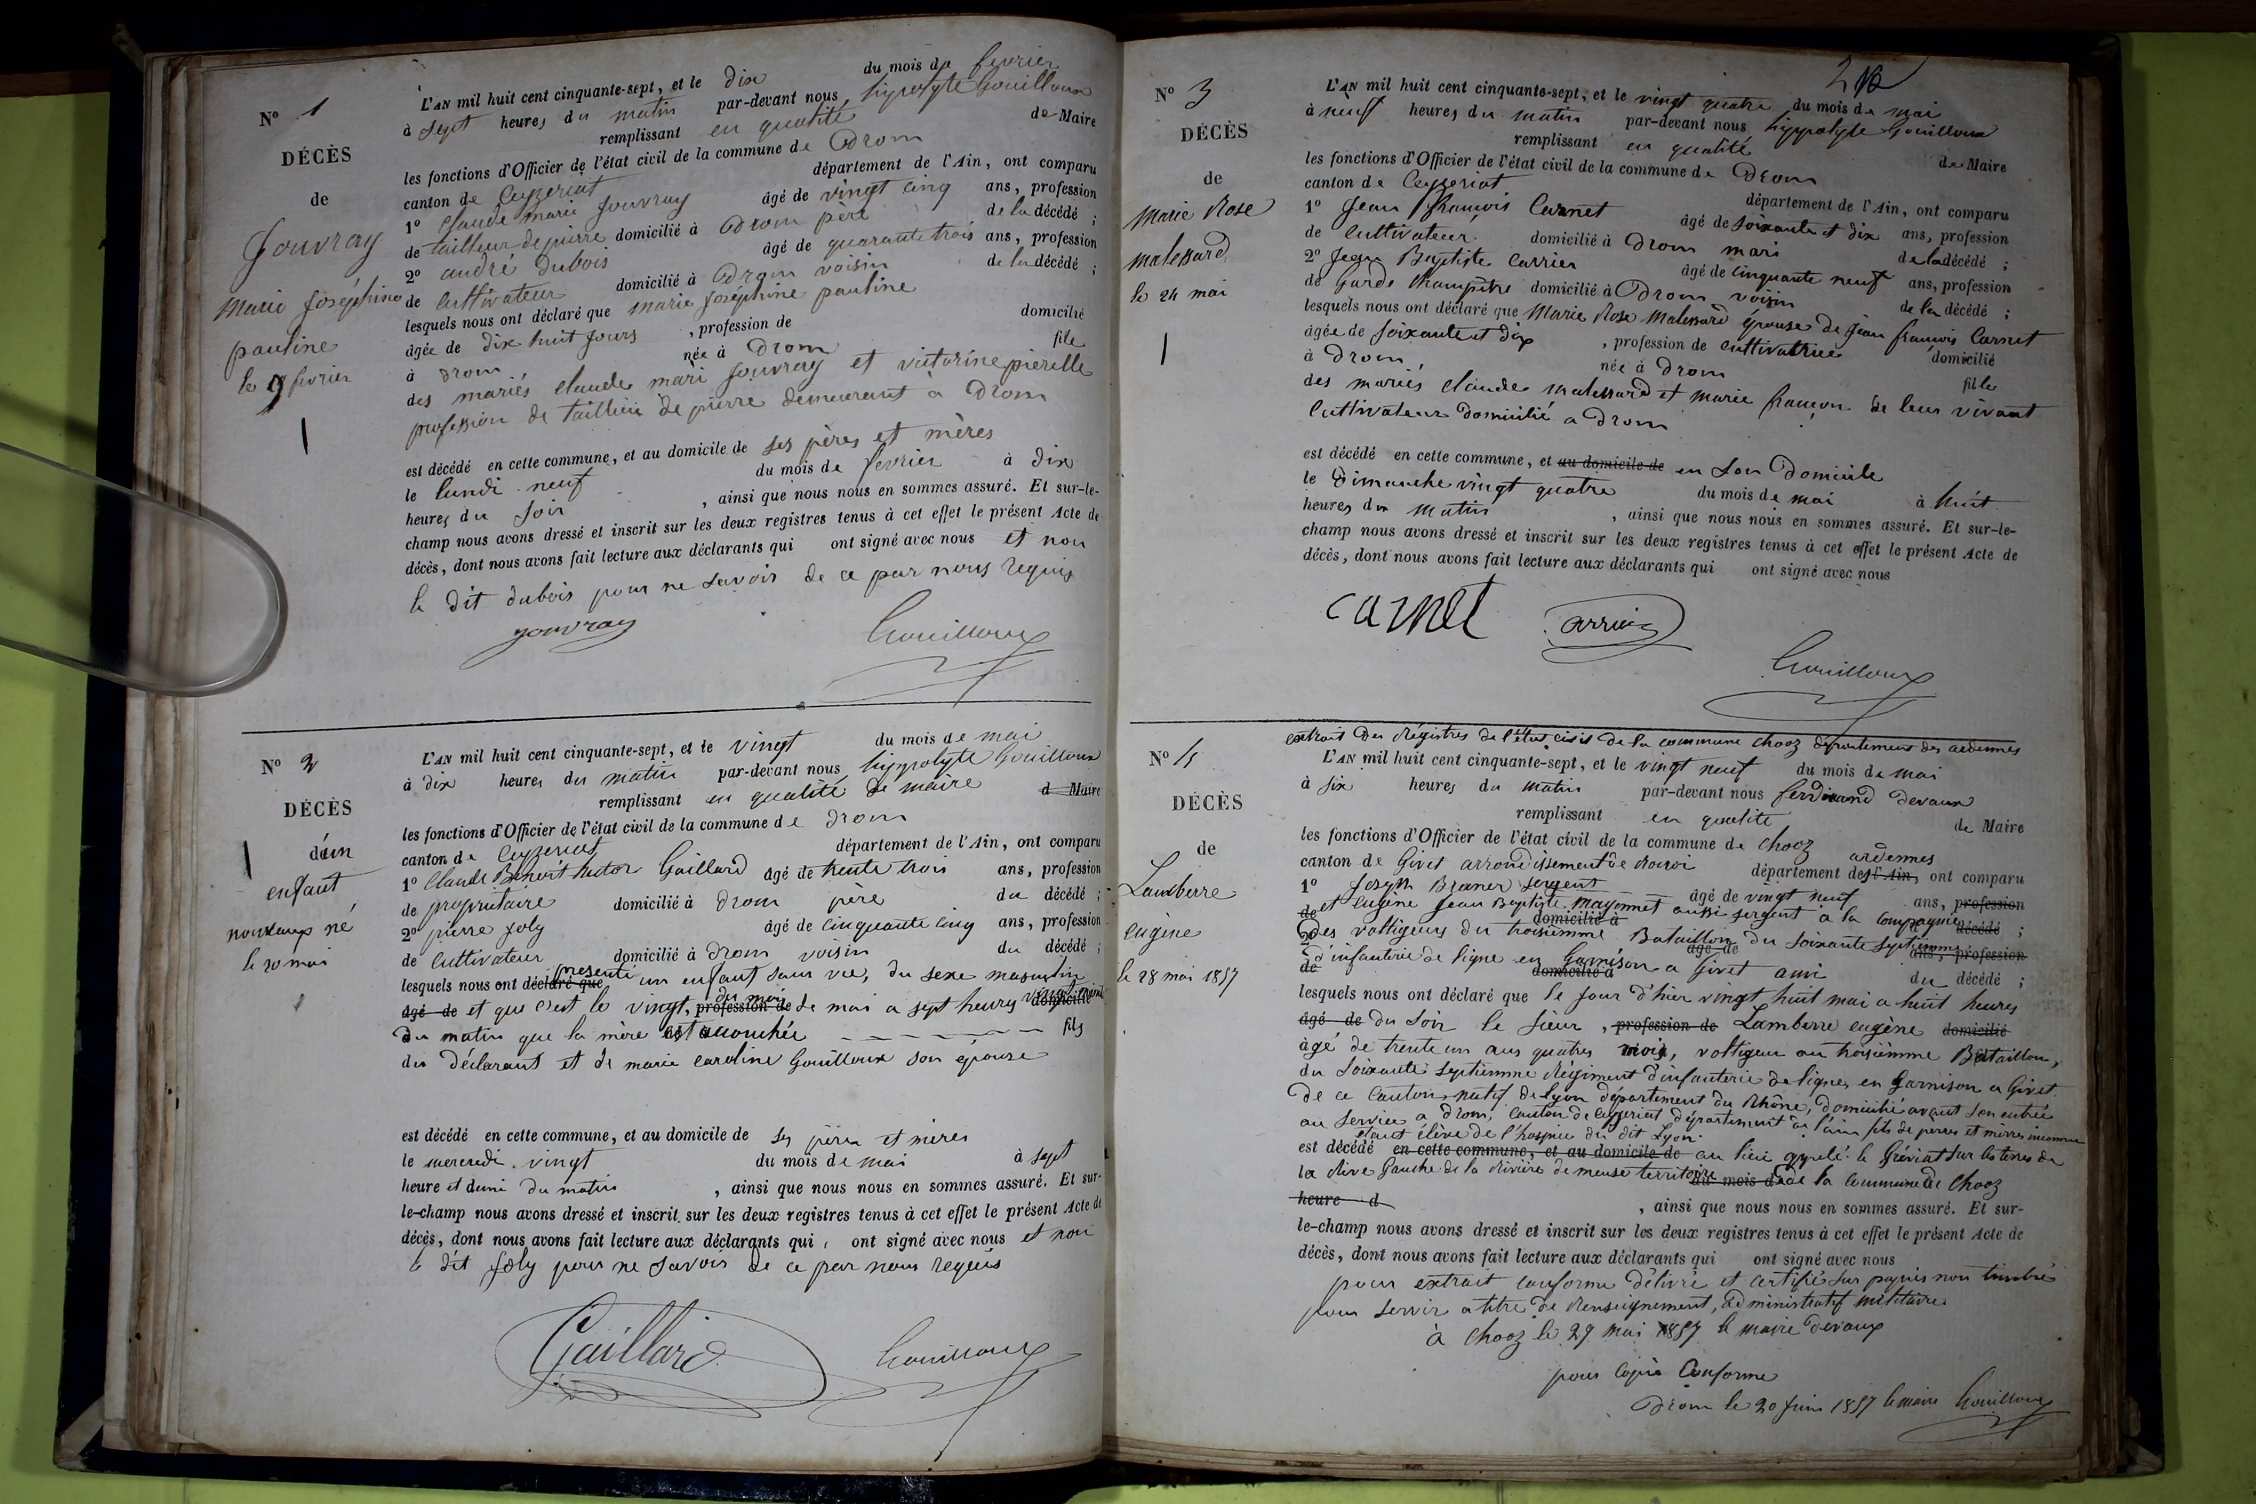 N° 1
DÉCÈS
de
Jouvray
Marie Joséphine
pauline
le 9 fevrier
L'AN mil huit cent cinquante-sept, et le dix du mois de fevrier
à sept heures du matin par-devant nous hypolyte Gouilloux
remplissant en qualité de Maire
les fonctions d'Officier de l'état civil de la commune de Drom
canton de Ceyzeriat département de l'Ain, ont comparu
1° Claude marie Jouvray âgé de vingt cinq ans, profession
de tailleur de pierre domicilié à Drom père de la décédé ;
2° andré dubois âgé de quarante trois ans, profession
de Cultivateur domicilié à Drom voisin de la décédé ;
lesquels nous ont déclaré que marie Joséphine pauline
âgée de dix huit jours , profession de domicilié
à Drom née à Drom fille
des mariés claude mari Jouvray et victorine pierelle
profession de tailleur de pierre demeurant à Drom
est décédé en cette commune, et au domicile de ses pères et mères
le lundi neuf du mois de fevrier à dix
heures du soir , ainsi que nous nous en sommes assuré. Et sur-le-
champ nous avons dressé et inscrit sur les deux registres tenus à cet effet le présent Acte de
décès, dont nous avons fait lecture aux déclarants qui ont signé avec nous et non
le dit dubois pour ne savoir de ce par nous requis
Jouvray Gouilloux
N° 2
DÉCÈS
d'un
enfant
nouveaux né
le 20 mai
L'AN mil huit cent cinquante-sept, et le vingt du mois de mai
à dix heures du matin par-devant nous hyppolyte Gouilloux
remplissant en qualité de maire d Maire
les fonctions d'Officier de l'état civil de la commune de Drom
canton de Ceyzeriat département de l'Ain, ont comparu
1° Claude Benoit hector Gaillard âgé de trente trois ans, profession
de propriétaire domicilié à Drom père du décédé ;
2° pierre Joly âgé de cinquante cinq ans, profession
de Cultivateur domicilié à Drom voisin du décédé ;
lesquels nous ont déclaré que présenté un enfant sans vie, du sexe masculin
âgé de et que c'est le vingt, profession de du mois de mai a sept heures domicilié
du matin que la mère est accouchée fils
du déclarant et de marie caroline Gouilloux son épouse
est décédé en cette commune, et au domicile de ses pères et mères
le mercredi vingt du mois de mai à sept
heure et demi du matin , ainsi que nous nous en sommes assuré. Et sur-
le-champ nous avons dressé et inscrit sur les deux registres tenus à cet effet le présent Acte de
décès, dont nous avons fait lecture aux déclarants qui ont signé avec nous et non
le dit Joly pour ne savoir de ce par nous requis
Gaillard Gouilloux
N° 3
DÉCÈS
de
Marie Rose
malessard
le 24 mai
L'AN mil huit cent cinquante-sept, et le vingt quatre du mois de mai
à neuf heures du matin par-devant nous hyppolyte Gouilloux
remplissant en qualité de Maire
les fonctions d'Officier de l'état civil de la commune de Drom
canton de Ceyzeriat département de l'Ain, ont comparu
1° Jean françois Carnet âgé de soixante et dix ans, profession
de cultivateur domicilié à Drom mari de la décédé ;
2° Jean Baptiste Carrier âgé de cinquante neuf ans, profession
de Garde Champêtre domicilié à Drom voisin de la décédé ;
lesquels nous ont déclaré que Marie Rose Malessard épouse de Jean francois Carnet
âgée de soixante et dix , profession de cultivatrice domicilié
à Drom née à Drom fille
des mariés claude malessard et marie francon de leur vivant
Cultivateur domicilié a Drom
est décédé en cette commune, et au domicile de en son Domicile
le dimanche vingt quatre du mois de mai à huit
heures du matin , ainsi que nous nous en sommes assuré. Et sur-le-
champ nous avons dressé et inscrit sur les deux registres tenus à cet effet le présent Acte de
décès, dont nous avons fait lecture aux déclarants qui ont signé avec nous
Carnet Carrier
Gouilloux
extrait des Régistres de l'état civil de la commune chooz département des ardennes
N° 4
DÉCÈS
de
Lamberre
eugène
le 28 mai 1857
L'AN mil huit cent cinquante-sept, et le vingt neuf du mois de mai
à six heures du matin par-devant nous ferdinand devaux
remplissant en qualité de Maire
les fonctions d'Officier de l'état civil de la commune de chooz
canton de Givet arrondissement de Rocroi département des l'Ain, ardennes ont comparu
1° Joseph Braner sergent âgé de vingt neuf ans, profession
de et eugène Jean Baptiste mayonnet aussi sergent à la compagnie décédé ;
2° des voltigeurs du troisiemme domicilié à Bataillon du soixante septiemme ans, profession
de d'infanterie de ligne en Garnison a Givet ami domicilié à du décédé ;
lesquels nous ont déclaré que le jour d'hier vingt huit mai a huit heures
âgé de du soir le sieur , profession de Lamberre eugène domicilié
âgé de trente un ans quatres mois, voltigeur au troisiemme Bataillon,
du soixante septiemme Régiment d'infanterie de ligne, en Garnison a Givet
de ce canton, natif de Lyon département du Rhône, domicilié avant son entrée
au service a Drom, canton de ceyzeriat département de l'ain fils de perres et mèrres inconnue
etant élève de l'hospice du dit Lyon.
est décédé en cette commune, et au domicile de au lieu appelé le Gréviat sur les terres de
la Rive Gauche de la Rivière de meuse territoire du mois d de la commune de Chooz
heure d , ainsi que nous nous en sommes assuré. Et sur-
le-champ nous avons dressé et inscrit sur les deux registres tenus à cet effet le présent Acte de
décès, dont nous avons fait lecture aux déclarants qui ont signé avec nous
pour extrait conforme délivré et certifié sur papier non timbré
pour servir a titre de Renseignement, administratif militaire
à chooz le 29 mai 1857 le maire devaux
pour copie Conforme
Drom le 20 juin 1857 le maire Gouilloux